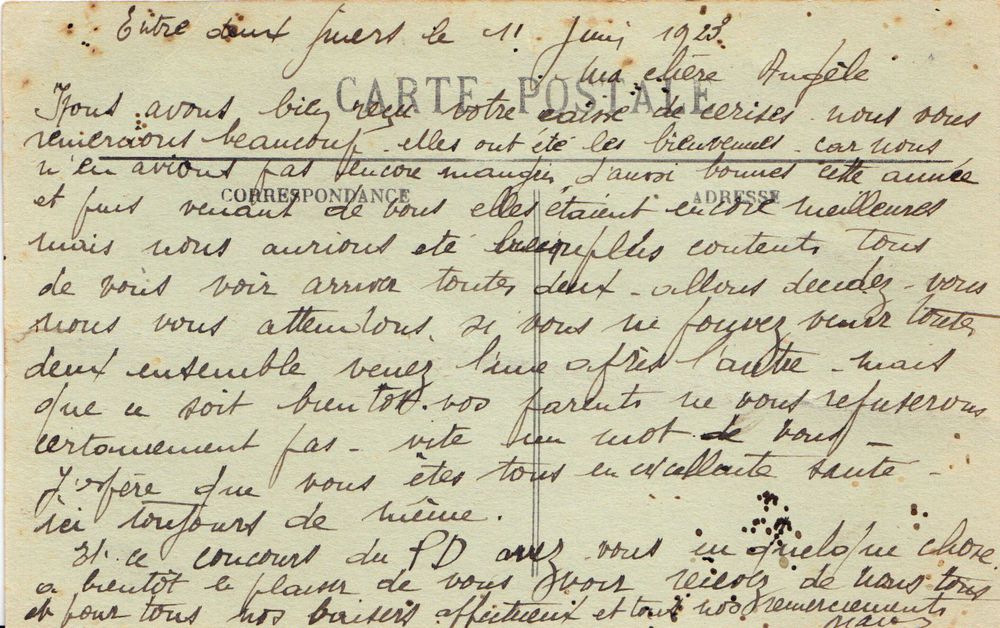 Entre deux Guiers le 11 Juin 1923
Ma chère Angèle
CARTE POSTALE
Nous avons bien reçu votre caisse de cerises nous vous
remercions beaucoup - elles ont été les bienvenues - car nous
n'en avions pas encore mangées d'aussi bonnes cette année
CORRESPONDANCE
ADRESSE
et puis venant de vous elles étaient encore meilleures
mais nous aurions été plus contents tous
de vous voir arriver toutes deux - allons décidez - vous
nous vous attendons, si vous ne pouvez venir toutes
deux ensemble venez l'une après l'autre - mais
que ce soit bientôt. vos parents ne vous refuserons
certainement pas - vite un mot de vous -
J'espère que vous êtes tous en excellente santé -
ici toujours de même.
Et ce concours du PD avez vous eu quelque chose.
a bientôt le plaisir de vous voir recevez de nous tous
et pour tous nos baisers affectueux et tous nos remerciements